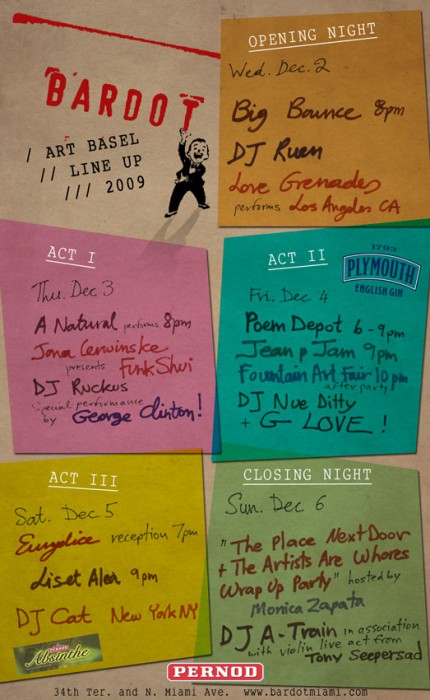 BARDOT
/ ART BASEL
// LINE UP
/// 2009
OPENING NIGHT
Wed. Dec. 2
Big Bounce 8pm
DJ Ruen
Love Grenades
performs Los Angeles CA
ACT I
Thu. Dec 3
A Natural performs 8pm
Jona Cerwinske
presents Funk Shui
DJ Ruckus
Special performance
by George Clinton!
ACT II
1793
PLYMOUTH
ENGLISH GIN
Fri. Dec 4
Poem Depot 6-9pm
Jean p Jam 9pm
Fountain Art Fair 10pm
after party
DJ Nue Ditty
+ G LOVE!
ACT III
Sat. Dec 5
Euridice reception 7pm
Liset Alea 9pm
DJ Cat New York NY
PERNOD
Absinthe
CLOSING NIGHT
Sun. Dec 6
"The Place Next Door
+ The Artists Are Whores
Wrap Up Party" hosted by
Monica Zapata
DJ A-Train in association
with violin live act from
Tony Seepersad
PERNOD
34th Ter. and N. Miami Ave. www.bardotmiami.com